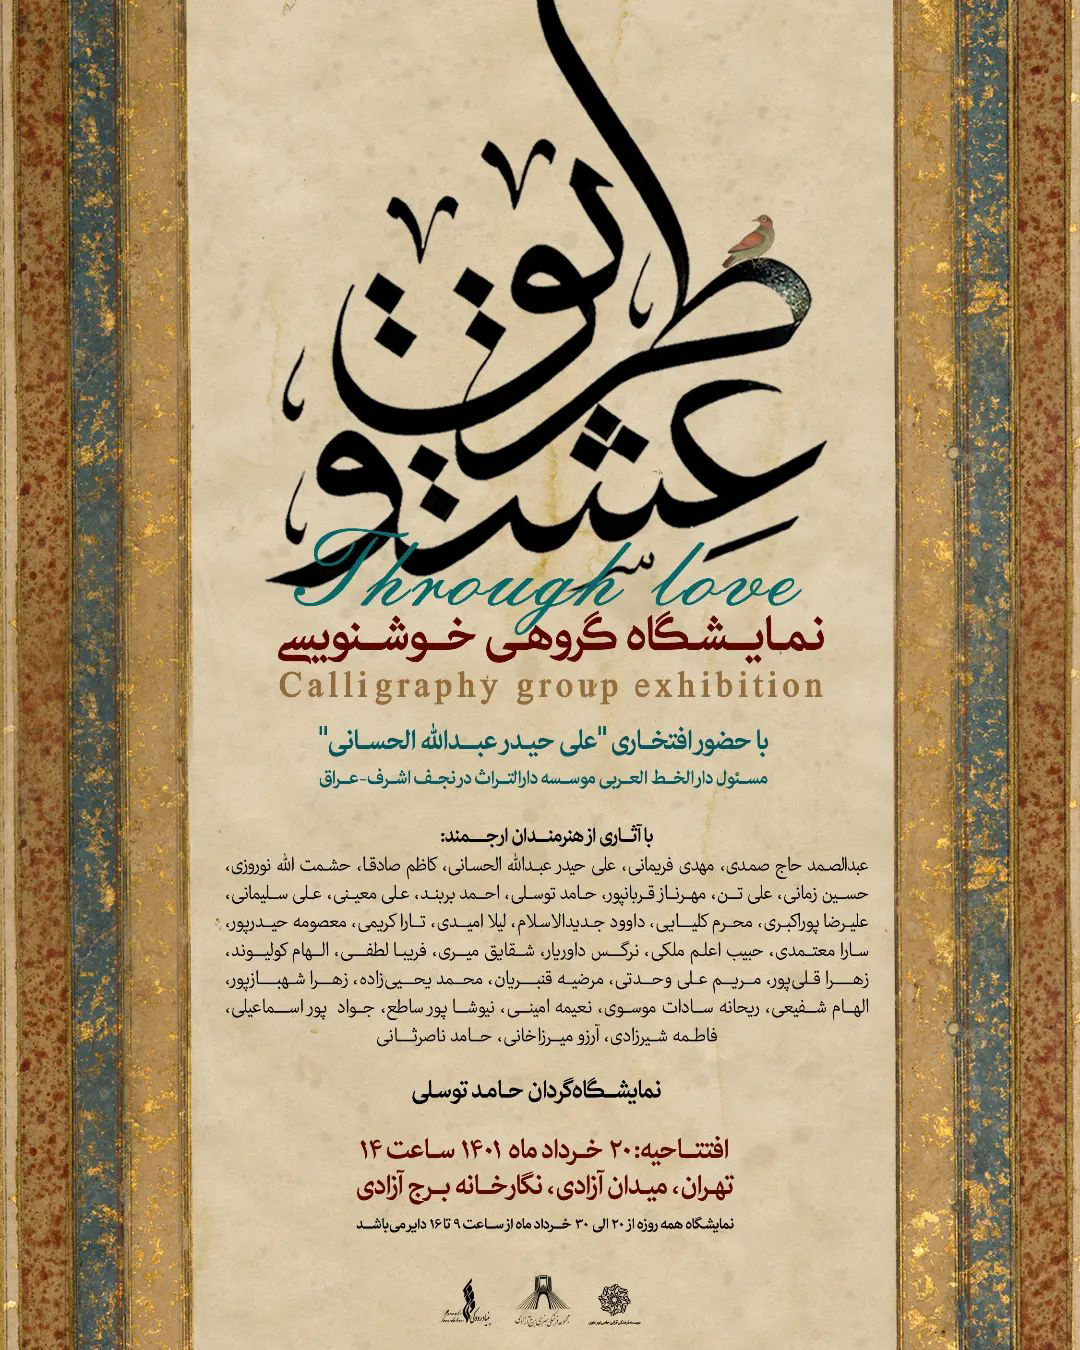 طریق
عشق و
Through love
نمایشگاه گروهی خوشنویسی
Calligraphy group exhibition
با حضور افتخاری "علی حیدر عبدالله الحسانی"
مسئول دارالخط العربی موسسه دارالتراث در نجف اشرف-عراق
با آثاری از هنرمندان ارجمند:
عبدالصمد حاج صمدی، مهدی فریمانی، علی حیدر عبدالله الحسانی، کاظم صادقا، حشمت الله نوروزی،
حسین زمانی، علی تن، مهرناز قربانپور، حامد توسلی، احمد بربند، علی معینی، علی سلیمانی،
علیرضا پوراکبری، محرم کلیایی، داوود جدیدالاسلام، لیلا امیدی، تارا کریمی، معصومه حیدرپور،
سارا معتمدی، حبیب اعلم ملکی، نرگس داوریار، شقایق میری، فریبا لطفی، الهام کولیوند،
زهرا قلی‌پور، مریم علی وحدتی، مرضیه قنبریان، محمد یحیی‌زاده، زهرا شهبازپور،
الهام شفیعی، ریحانه سادات موسوی، نعیمه امینی، نیوشا پور ساطع، جواد پور اسماعیلی،
فاطمه شیرزادی، آرزو میرزاخانی، حامد ناصرثانی
نمایشگاه‌گردان حامد توسلی
افتتاحیه: ۲۰ خرداد ماه ۱۴۰۱ ساعت ۱۴
تهران، میدان آزادی، نگارخانه برج آزادی
نمایشگاه همه روزه از ۲۰ الی ۳۰ خرداد ماه از ساعت ۹ تا ۱۶ دایر می‌باشد
بنیاد رودکی
مجموعه فرهنگی هنری برج آزادی